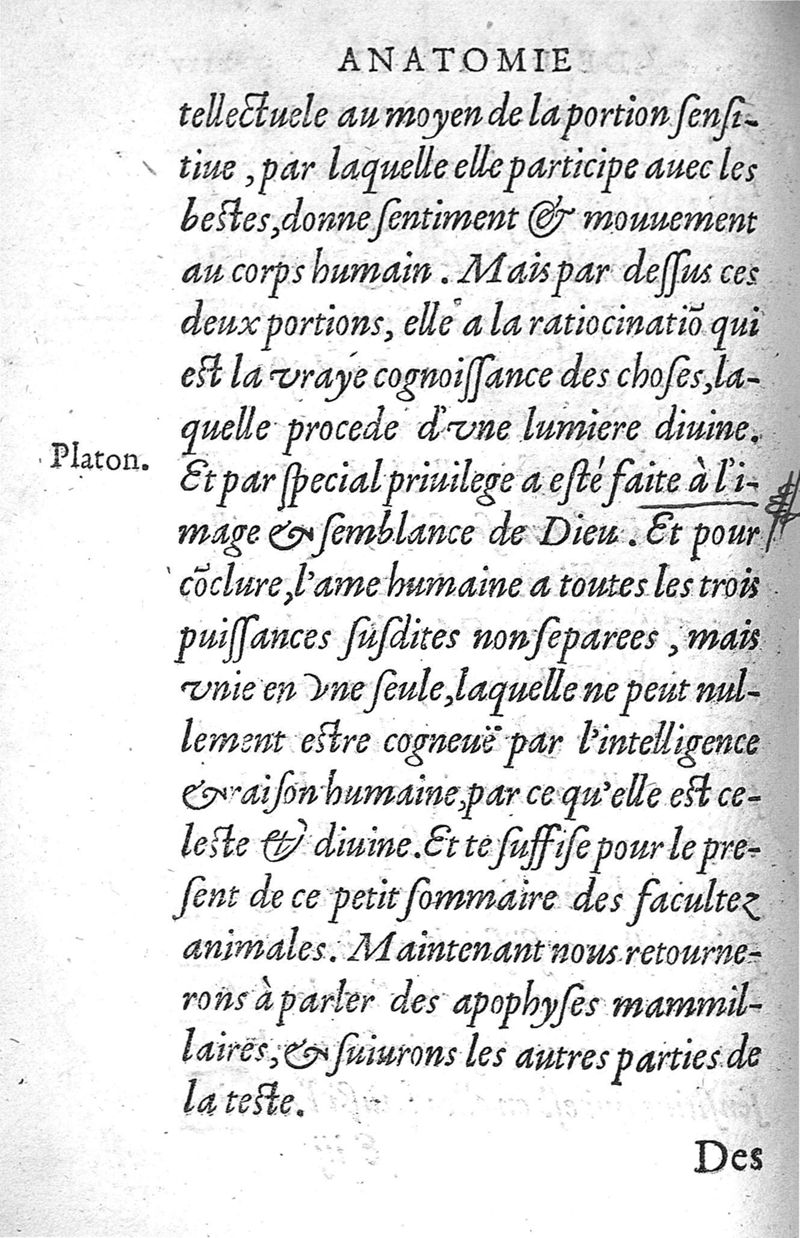 ANATOMIE
tellectuele au moyen de la portion ſenſi-
tiue, par laquelle elle participe auec les
beſtes, donne ſentiment & mouuement
au corps humain. Mais par deſſus ces
deux portions, elle a la ratiocinatiõ qui
eſt la vraye cognoiſſance des choſes, la-
quelle procede d'vne lumiere diuine.
Platon.
Et par ſpecial priuilege a eſté faite à l'i-
mage & ſemblance de Dieu. Et pour
cõclure, l'ame humaine a toutes les trois
puiſſances ſuſdites non ſeparees, mais
vnie en vne ſeule, laquelle ne peut nul-
lement eſtre cogneuë par l'intelligence
& raiſon humaine, par ce qu'elle eſt ce-
leſte & diuine. Et te ſuffiſe pour le pre-
ſent de ce petit ſommaire des facultez
animales. Maintenant nous retourne-
rons à parler des apophyſes mammil-
laires, & ſuiurons les autres parties de
la teſte.
Des